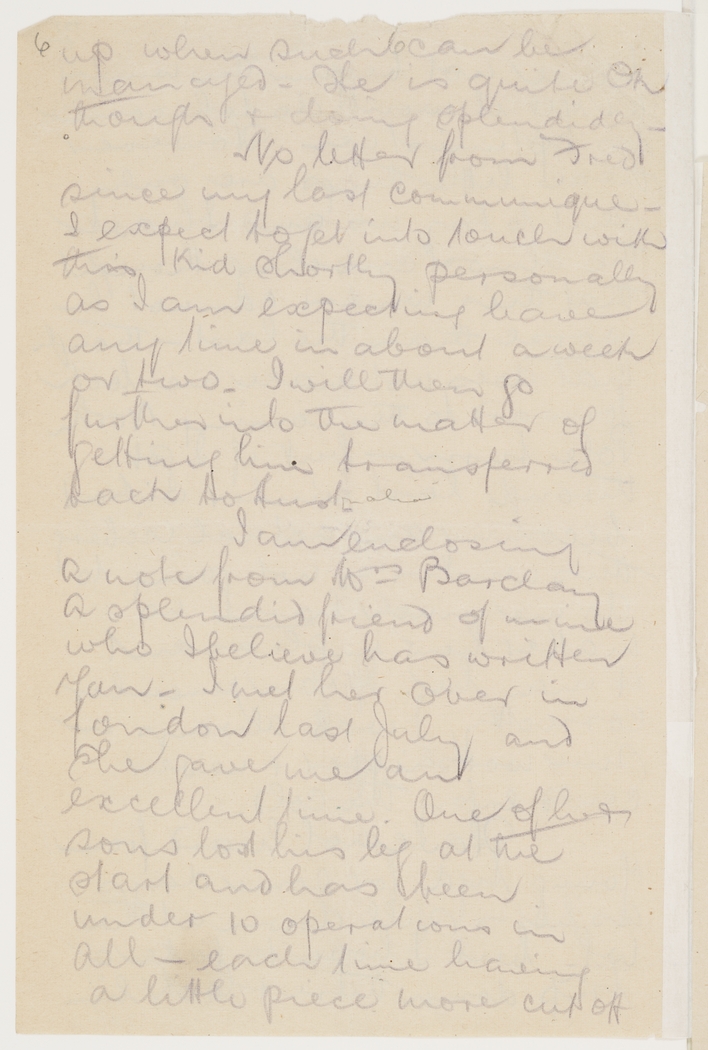 6 up when such can be
managed - He is quite Ok
though & doing splendidly -
No letter from Fred
since my last communique -
I expect to get into touch with
this Kid shortly personally
as I am expecting leave
any time in about a week
or two - I will then go
further into the matter of
getting him transferred
back to Australia
I am enclosing
a note from Mrs Barclay
a splendid friend of mine
who I believe has written
You - I met her over in
London last July and
she gave me an
excellent time. One of her
sons lost his leg at the
start and has been
under 10 operations in
all - each time having
a little piece more cut off